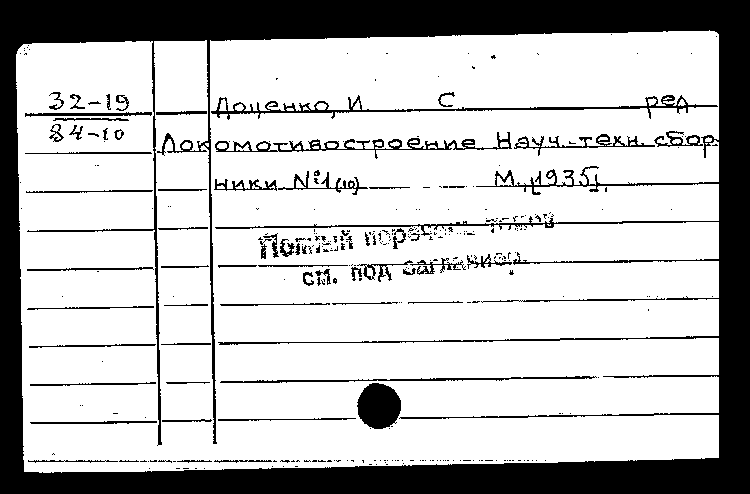 32-19
84-10
Доценко, И. С ред.
Локомотивостроение Науч.-техн. сбор-
ники №1(10) М., [1935].
Полный перечень томов
см. под заглавием.